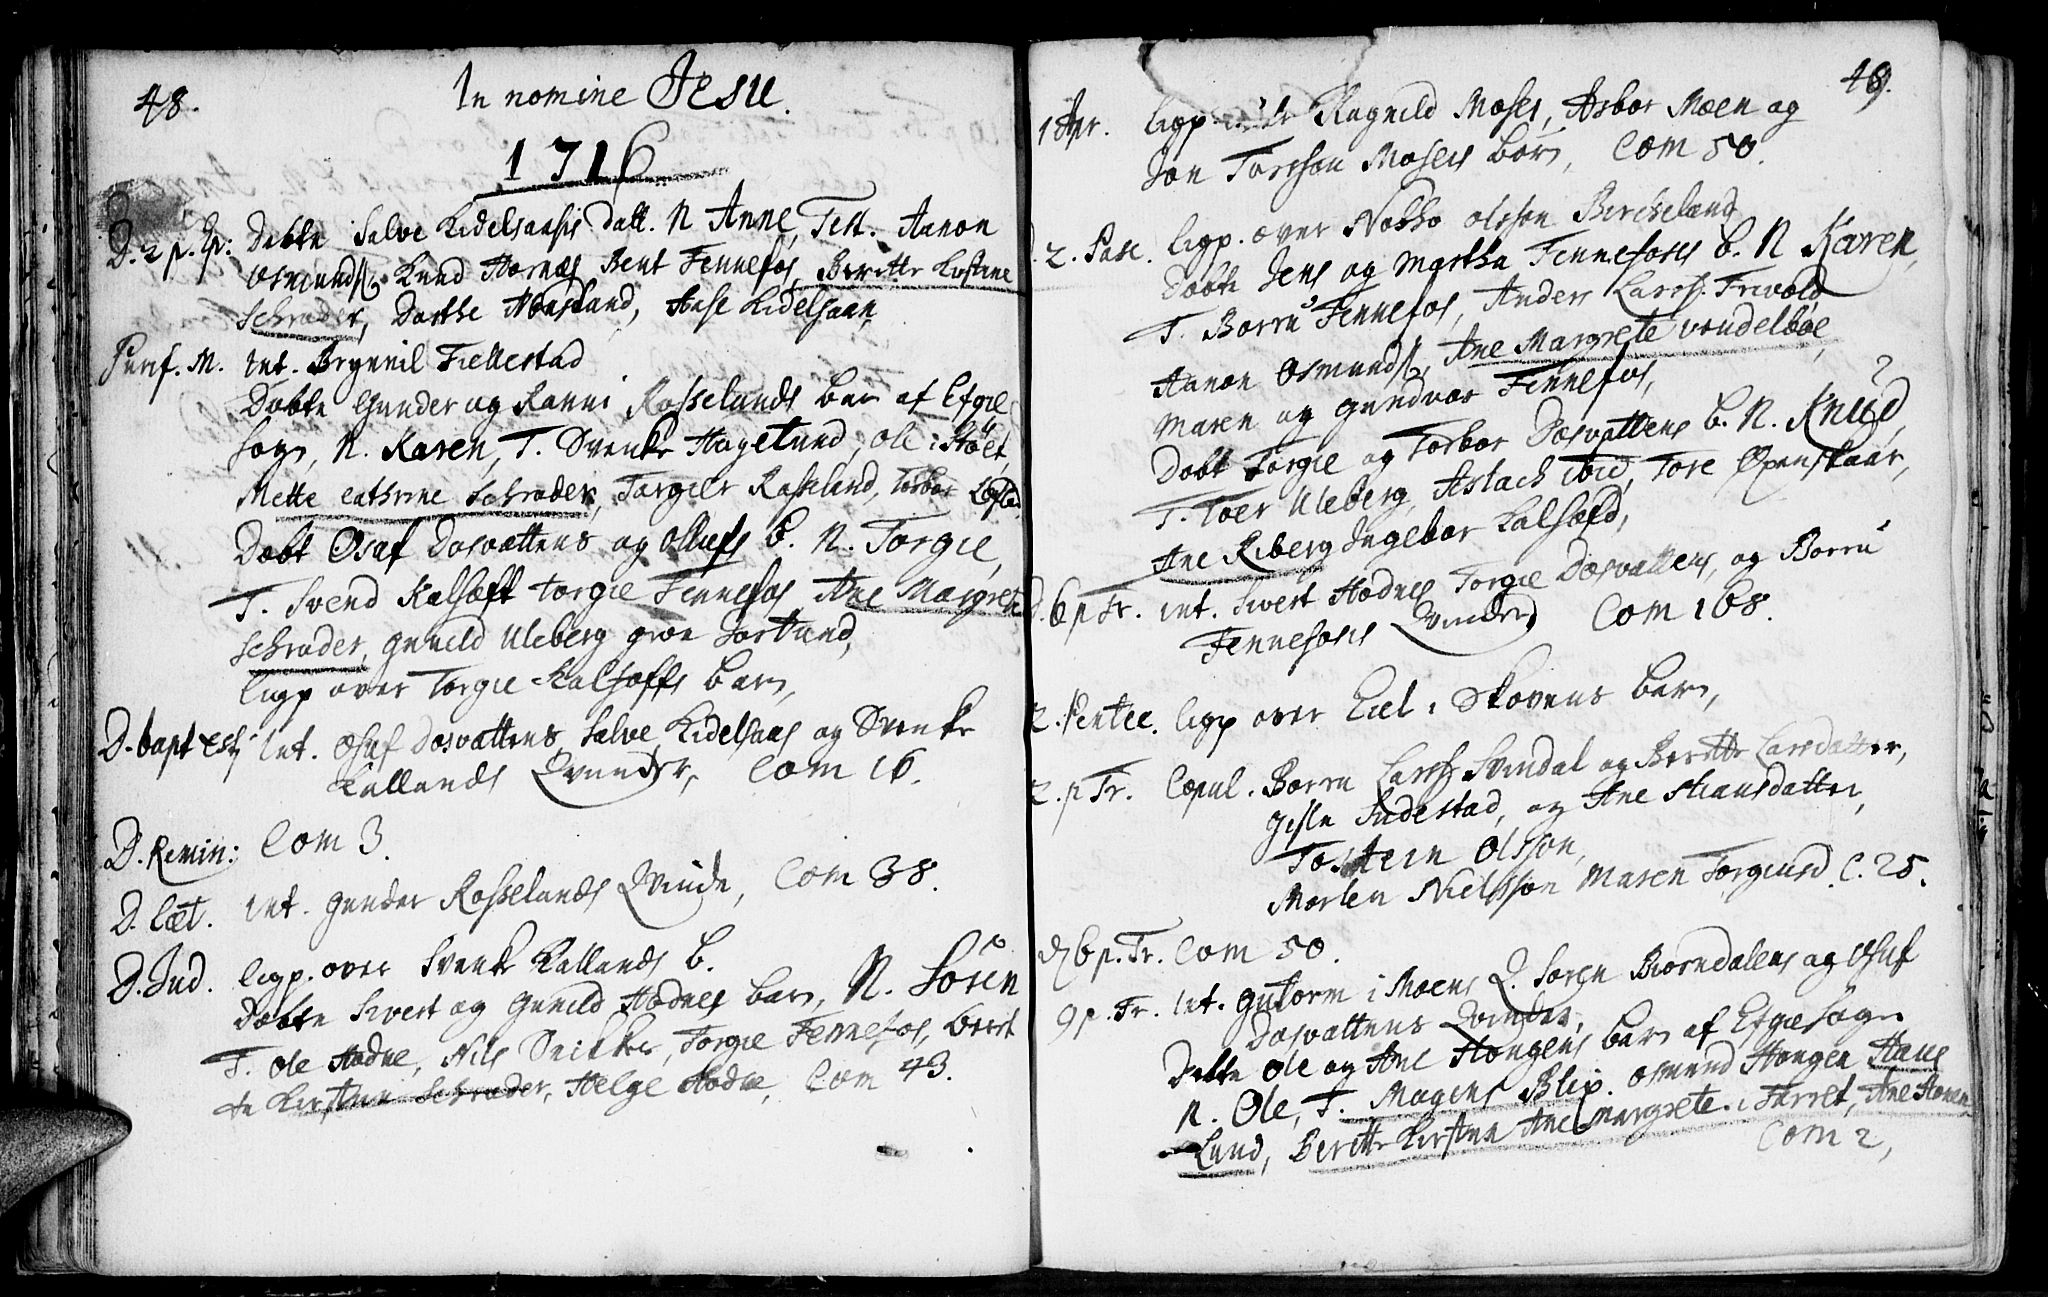 48.
In nomine Jesu.
1716
D. 2 p. Ep: Døbte Salve Kidelsaasis Datt. N Anne, Test. Aanon
Osmunds. Knud Hornes Bent Fennefos, Beritte Kirstine
Schrader, Dorthe Honsland, Aase Kidelsaas,
Purif. M. Int. Brynnil Fiellestad
Døbte Gunder og Ranni Rosselands Barn af Efgie
Sogn, N. Karen, T. Svenke Hagelund, Ole i Støet,
Mette Cathrine Schrader, Torgier Rosseland, Torbor
Døbt Osuf Dosvattens og Ollufs B. N. Torgie,
T. Svend Kalsæft Torgie Fennefos Ane Margrete
Schrader, Gunild Uleberg Groe
ligp over Torgie Kalsoffs Barn,
D. bapt est Int. Osuf Dosvattens Salve Kidelsaas og Svenke
Kallands Qvinder, Com 16.
D. Remin: Com 3.
D. Læt. Int. Gunder Rosselands Qvinde, Com 38.
D. Jud. ligp. over Svenke Kallands B.
Døbte Sivert og Gunild Hodnes Barn, N. Søren
T. Ole Hodne, Nils Snicker, Torgie Fennefos, Berit
te Kirstine Schrader, Helge Hodne, Com 43.
49.
1 Apr. ligp. Ragnild Moses, Asbør Moen og
Jon Toresøn Moseis Børn, Com 50.
D. 2. Pasc. ligp. over Olsøn Bircheland
Døbte Jens og Martha Fennefosis B. N Karen,
T. Børru Fennefos, Anders Larss. Trivold
Aanon Osmunds, Ane Margrete Vendelbøe,
Maren og Gundvor Fennefos,
Døbt Torgie og Torbor Dosvattens B. N. Knud,
T. Toer Uleberg, Aslach ibid, Tore
Ane Riberg Ingebor Kalsæfd,
D. 6 p Tr. Int. Sivert Hodnes Torgie Dosvattens, og Børru
Fennefosis Qvinder, Com 168.
2. Pentec. ligp over Eiel i Skovens Barn,
2. p Tr. Copul. Børru Larss. Svindal og Beritte Larsdatter,
Gisle Sudestad, og Ane Hansdatter,
Tostein Olssøn,
Morten Nielssøn Maren Torgiusd. C. 25.
D 6 p. Tr. Com 50.
9 p. Tr. Int. Gutorm i Moens Q. Søren Biørndalens og Osuf
Dosvattens Qvinder,
Døbte Ole og Ane Hongens Barn af Efgie Sogn
N. Ole, T. Mogens Blix. Osmund Hongen Hans
Lund, Beritte Kirstine Ane Margrete i Ane
Com 2,